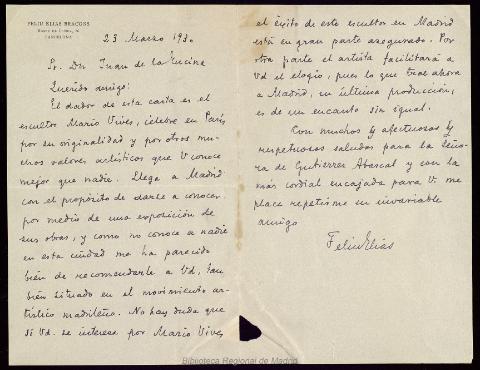 FELIU ELIAS BRACONS
BARCELONA
23 Marzo 1930
Sr. Dn Juan de la Encina
Querido amigo:
El dador de esta carta es el
escultor Mario Vives, célebre en París
por su originalidad y por otros mu-
chos valores artísticos que V conoce
mejor que nadie. Llega a Madrid
con el propósito de darse a conocer
por medio de una exposición de
sus obras, y como no conoce a nadie
en esta ciudad me ha parecido
bién de recomendarle a Vd, tan
bién situado en el movimiento ar-
tístico madrileño. No hay duda que
si Vd. se interesa por Mario Vives
el éxito de este escultor en Madrid
está en gran parte asegurado. Por
otra parte el artista facilitará a
Vd el elogio, pues lo que trae ahora
a Madrid, su última producción,
es de un encanto sin igual.
Con muchos y afectuosos y
respetuosos saludos para la Seño-
ra de Gutierrez Abascal y con la
más cordial encajada para V. me
place repetirme su invariable
amigo
Feliu Elias
Biblioteca Regional de Madrid